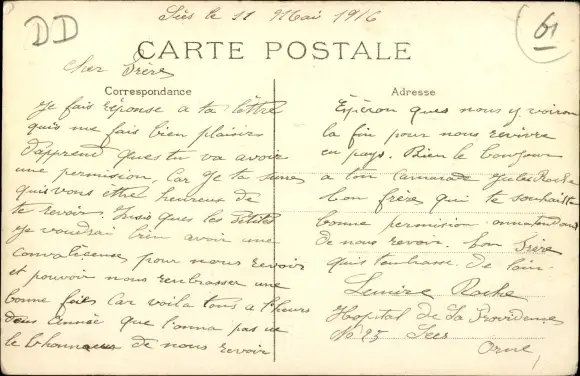 Sées le 11 Mai 1916
DD
61
CARTE POSTALE
Cher Frère
Correspondance
Je fais réponse a ta lettre
quis me fais bien plaisir
d'apprend ques tu va avoir
une permission. Car Je ta
quis vous être heureux de
te revoir. ques les
Je voudrai bien avoir une
pour nous revoir
et pouvoir nous renbrasser une
bonne fois Car voila tous a l'heure
deux année que l'on na pas
le de nous revoir
Adresse
Espéron ques nous y voiron
la fin pour nous revivre
en pays. Bien le bonjour
a ton Camarade Jules Roche
ton frère qui te souhaitte
bonne permission
de nous revoir. Ton Frère
quis t'embrasse de loin.
Roche
Hopital de La Providence
No 25 Sées
Orne